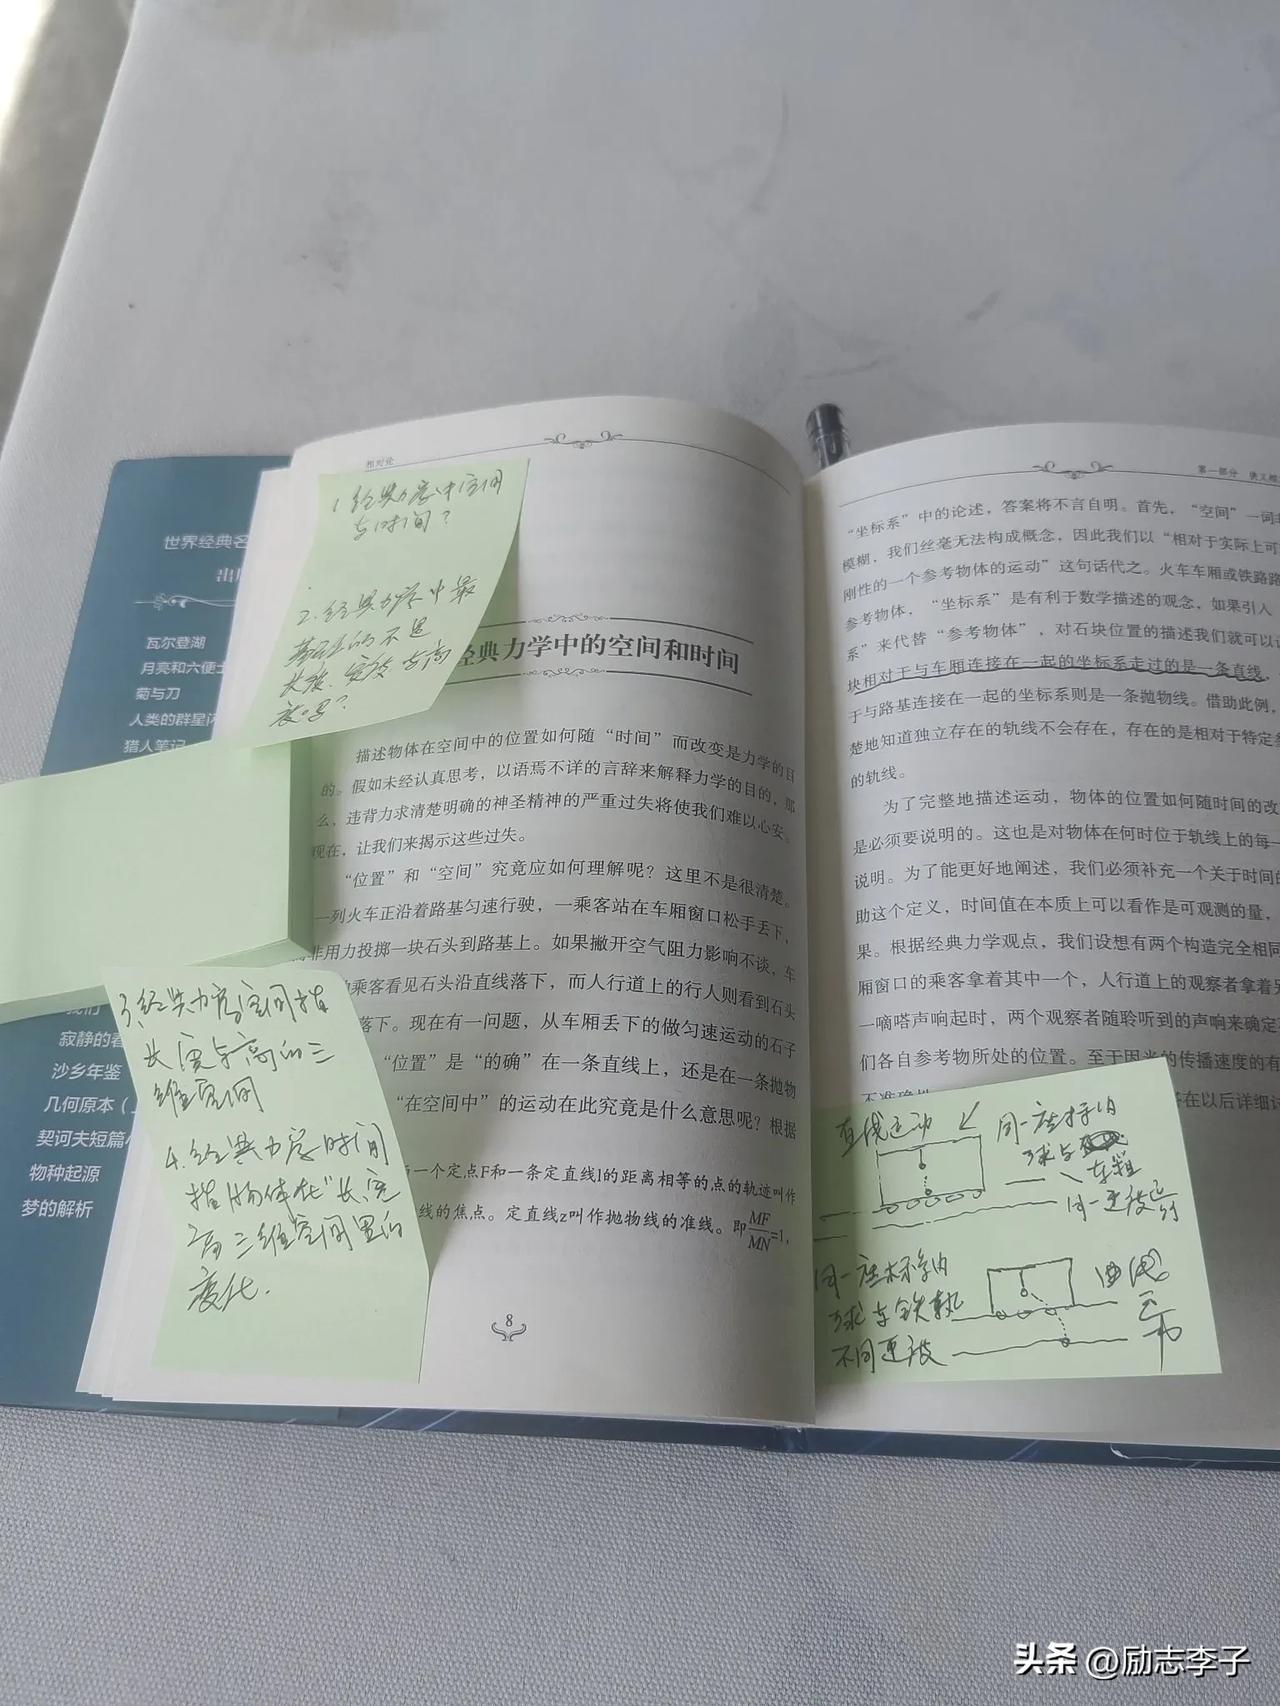 世界经典名
瓦尔登湖
月亮和六便士
菊与刀
人类的群星闪
猎人笔记
寂静的春
沙乡年鉴
几何原本（
契诃夫短篇小
物种起源
梦的解析
相对论
1.经典力学中空间
与时间？
2.经典力学中最
基石的不是
长度、宽度与高
度吗？
经典力学中的空间和时间
描述物体在空间中的位置如何随“时间”而改变是力学的目
的。假如未经认真思考，以语焉不详的言辞来解释力学的目的，那
么，违背力求清楚明确的神圣精神的严重过失将使我们难以心安。
现在，让我们来揭示这些过失。
“位置”和“空间”究竟应如何理解呢？这里不是很清楚。
一列火车正沿着路基匀速行驶，一乘客站在车厢窗口松手丢下，
非用力投掷一块石头到路基上。如果撇开空气阻力影响不谈，车
乘客看见石头沿直线落下，而人行道上的行人则看到石头
落下。现在有一问题，从车厢丢下的做匀速运动的石子
“位置”是“的确”在一条直线上，还是在一条抛物
“在空间中”的运动在此究竟是什么意思呢？根据
一个定点F和一条定直线l的距离相等的点的轨迹叫作
线的焦点。定直线z叫作抛物线的准线。即MF/MN=1，
8
3.经典力学空间指
长宽与高的三
维空间
4.经典力学时间
指物体在“长宽
高三维空间里的
变化.
第一部分 狭义相
“坐标系”中的论述，答案将不言自明。首先，“空间”一词
模糊，我们丝毫无法构成概念，因此我们以“相对于实际上可
刚性的一个参考物体的运动”这句话代之。火车车厢或铁路路
参考物体，“坐标系”是有利于数学描述的观念，如果引入
系”来代替“参考物体”，对石块位置的描述我们就可以
块相对于与车厢连接在一起的坐标系走过的是一条直线，
于与路基连接在一起的坐标系则是一条抛物线。借助此例，
楚地知道独立存在的轨线不会存在，存在的是相对于特定
的轨线。
为了完整地描述运动，物体的位置如何随时间的改
是必须要说明的。这也是对物体在何时位于轨线上的每一
说明。为了能更好地阐述，我们必须补充一个关于时间的
助这个定义，时间值在本质上可以看作是可观测的量，
果。根据经典力学观点，我们设想有两个构造完全相同
厢窗口的乘客拿着其中一个，人行道上的观察者拿着另
一嘀嗒声响起时，两个观察者随聆听到的声响来确定
们各自参考物所处的位置。至于因光的传播速度的有
在以后详细讨
直线运动
同一座标内
球与
车辆
同一速度运行
同一座标系内
球与铁轨
不同速度
曲线
运动
头条 @励志李子